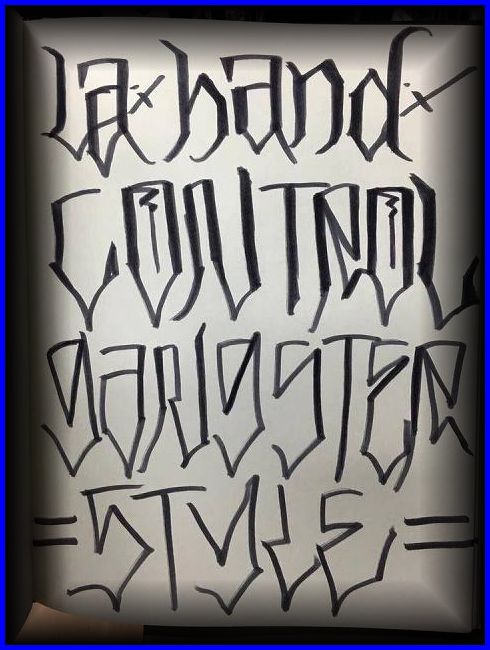 La hand
CONTROL
GANGSTER
= STYLE =